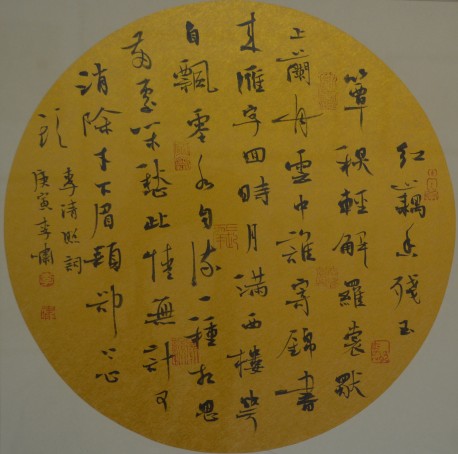 紅藕香殘玉
簟秋輕解羅裳獨
上蘭舟雲中誰寄錦書
來雁字回時月滿西樓花
自飄零水自流一種相思
兩處閒愁此情無計可
消除才下眉頭卻上心
頭
李清照詞
庚寅李嘯